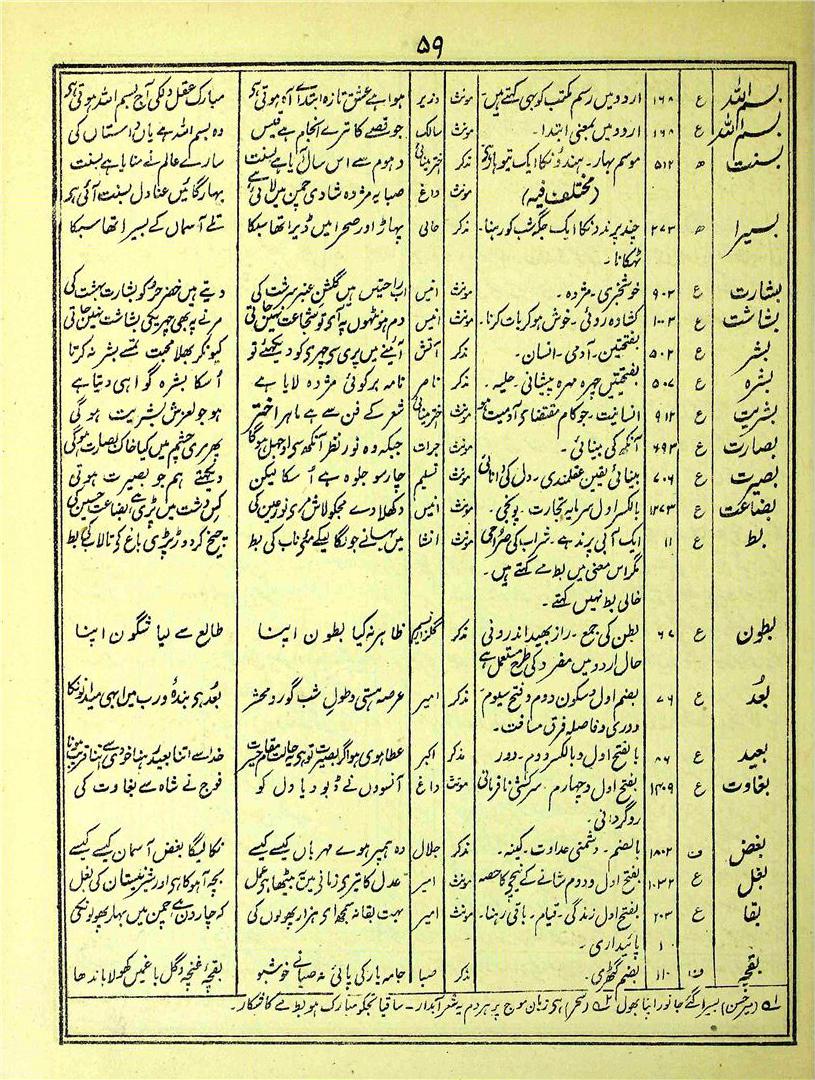 ۵۹
بسم اللہ ع ۱۶۸ اردو میں رسم مکتب کو بھی کہتے ہیں۔ مونث وزیر ہوا ہے عشق تازہ ابتدائے آہ ہوتی ہے مبارک عقل دلکی آج بسم اللہ ہوتی ہے
بسم اللہ ع ۱۶۸ اردو میں بمعنی ابتدا۔ مونث سالک جو قصے کا ترے انجام ہے قیس وہ بسم اللہ ہے یاں داستاں کی
بسنت ھ ۵۱۲ موسم بہار۔ ہندؤنکا ایک تیوہار ہے مذکر اختر مینائی دھوم سے اس سال آیا ہے بسنت سارے عالم نے منایا ہے بسنت
(مختلف فیہ) مونث داغ صبا یہ مژدہ شادی چمن میں لائی ہے بہار گائیں عنادل بسنت آئی ہے
بسیرا ھ ۲۷۳ چند پرندونکا ایک جگہ شب کو رہنا۔ مذکر حالی پہاڑ اور صحرا میں ڈیرا تھا سبکا تلے آسماں کے بسیرا تھا سبکا
ٹھکانا۔
بشارت ع ۹۰۳ خوشخبری۔ مژدہ۔ مونث انیس اب راحتیں ہیں گلشن عنبر سرشت کی دیتے ہیں خضر حر کو بشارت بہشت کی
بشاشت ع ۱۰۰۳ کشادہ روئی۔ خوش ہوکر بات کرنا۔ مونث انیس دم ہونٹھوں پہ آئے تو شجاعت نہیں جاتی مرنے پر بھی چہریکی بشاشت نہیں جاتی
بشر ع ۵۰۲ بفتحتین۔ آدمی۔ انسان۔ مذکر آتش آئینے میں پری سی چہری کو دیکھئے تو کیونکر بھلا محبت تمسے بشر نہ کرتا
بشرہ ع ۵۰۷ بفتحتین چہرہ مہرہ پیشانی۔ حلیہ۔ مذکر ناصر نامہ بر کوئی مژدہ لایا ہے اُسکا بشرہ گواہی دیتا ہے
بشریت ع ۹۱۲ انسانیت۔ جو کام مقتضائے آدمیت ہو مونث اختر مینائی شعر کے فن سے ہے ماہر اختر ہو جو لغزش بشریت ہوگی
بصارت ع ۶۹۳ آنکھ کی بینائی۔ مونث جرات جبکہ وہ نور نظر آنکھ سے اوجھل ہوگا پھر مری چشم میں کیا خاک بصارت ہوگی
بصیرت ع ۷۰۲ بینائی یقین عقلمندی۔ دل کی دانائی مونث تسلیم چارسو جلوہ ہے اُسکا لیکن دیکھتے ہم جو بصیرت ہوتی
بضاعت ع ۱۲۷۳ بالکسر اول سرمایہ تجارت۔ پونجی۔ مونث انیس دکھلا دے مجکو لاش مری نور عین کی کس دشت میں پڑی ہے بضاعت حسین کی
بط ع ۱۱ ایک آبی پرند ہے۔ شراب کی صراحی مونث انشا میں سہانے جو لگا لیکے مئے ناب کی بط چیخ کر دوڑ پڑی باغ کے تالاب کی بط
مگر اس معنی میں بط مے کہتے ہیں۔
خالی بط نہیں کہتے۔
بطون ع ۶۷ بطن کی جمع۔ راز بھید اندرونی مذکر گلزار نسیم ظاہر نہ کیا بطون اپنا طالع سے لیا شگون اپنا
حال اردو میں مفرد کی طرح مستعمل ہے
بُعد ع ۷۶ بضم اول و سکون دوم و فتح سیوم مذکر امیر عرصہ ہستی و طول شب گور و محشر بُعد ہے بندۂ و رب میں ابھی میدانونکا
دوری و فاصلہ فرق مسافت۔
بعید ع ۸۶ بالفتح اول و بالکسر دوم۔ دور مذکر اکبر عطا ہوئی ہو اگر بصیرت تو ہے یہ حالت مقام حیرت خدا سے اتنا بعید رہنا خودی سے اتنا قریب ہونا
بغاوت ع ۱۴۰۹ بفتح اول و چہارم سرکشی نافرمانی مونث داغ آنسووں نے ڈبو دیا دل کو فوج نے شاہ سے بغاوت کی
روگردانی۔
بغض ف ۱۸۰۲ بالضم۔ دشمنی عداوت۔ کینہ۔ مذکر جلال وہ ہمپر ہوے مہرباں کیسے کیسے نکالیگا بغض آسماں کیسے کیسے
بغل ع ۱۰۳۲ بفتح اول و دوم شانے کے نیچے کا حصہ مونث امیر عدل کا تیرے زمانے میں یہ بیٹھا ہے عمل بچہ آہو کا ہے اور شیر نیستان کی بغل
بقا ع ۲۰۳ بفتح اول زندگی۔ قیام۔ باقی رہنا۔ مونث امیر بہت بقا نہ سمجھ اے ہزار پھولوں کی کہ چار دن ہے چمن میں بہار پھولونکی
پائداری۔
بقچہ ف ۱۱۰ بضم گٹھری۔ مذکر صبا جامہ یار کی پائی نہ صبا نے خوشبو بقچۂ غنچہ و گل باغ میں کھولا باندھا
لہ (میر حسن) بسیرا گئے جانور اپنا بھول ۲؎ (سحر) ہے زبان موج پر ہر دم یہ شعر آبدار۔ ساقیا تجکو مبارک ہو بط مے کا شکار۔